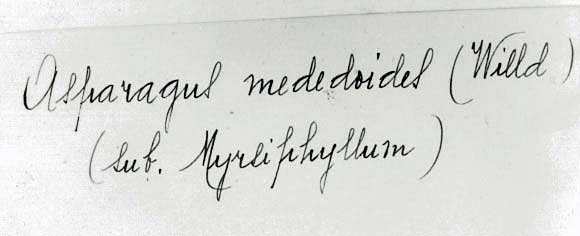 Asparagus mededoides (Willd)
(sub. Myrsiphyllum)